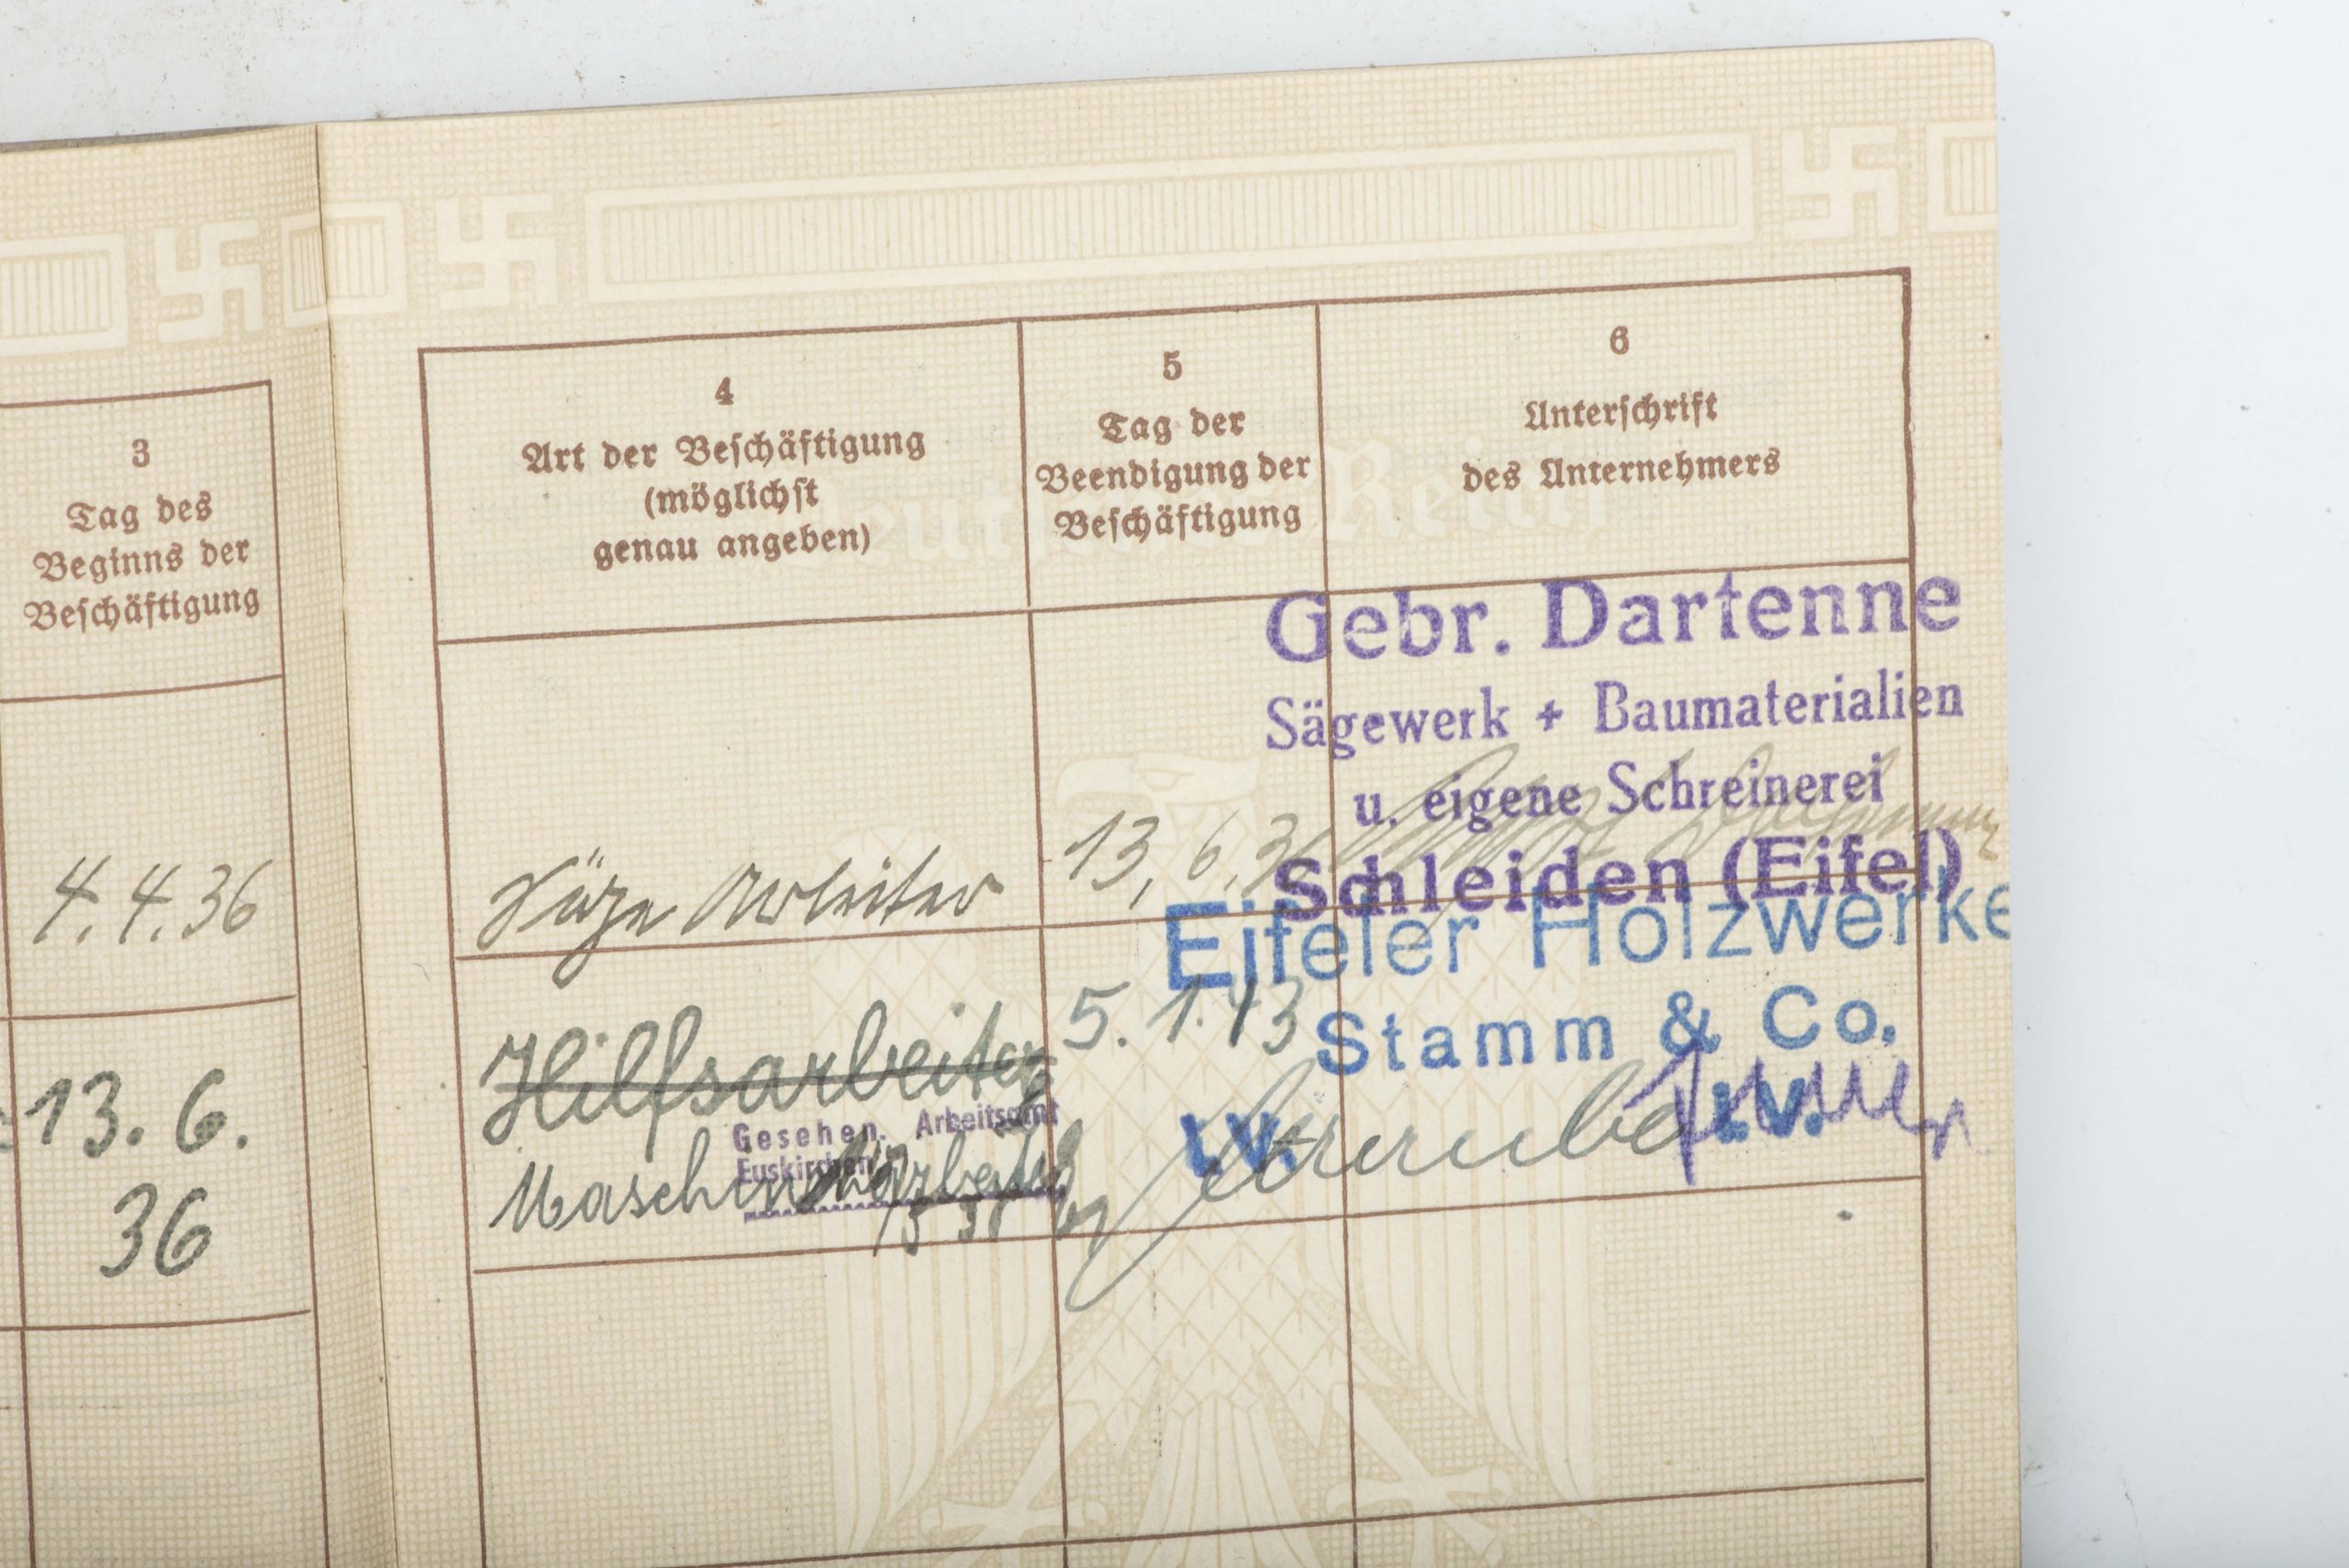 3
Tag des
Beginns der
Beschäftigung
4.4.36
13. 6.
36
4
Art der Beschäftigung
(möglichst
genau angeben)
5
Tag der
Beendigung der
Beschäftigung
6
Unterschrift
des Unternehmers
Säge Arbeiter
13, 6, 3
Gebr. Dartenne
Sägewerk + Baumaterialien
u. eigene Schreinerei
Schleiden (Eifel)
Hilfsarbeiter
5. 1. 43
Eifeler Holzwerke
Stamm & Co.
Gesehen. Arbeitsamt
Euskirchen
I.V.
I.V.